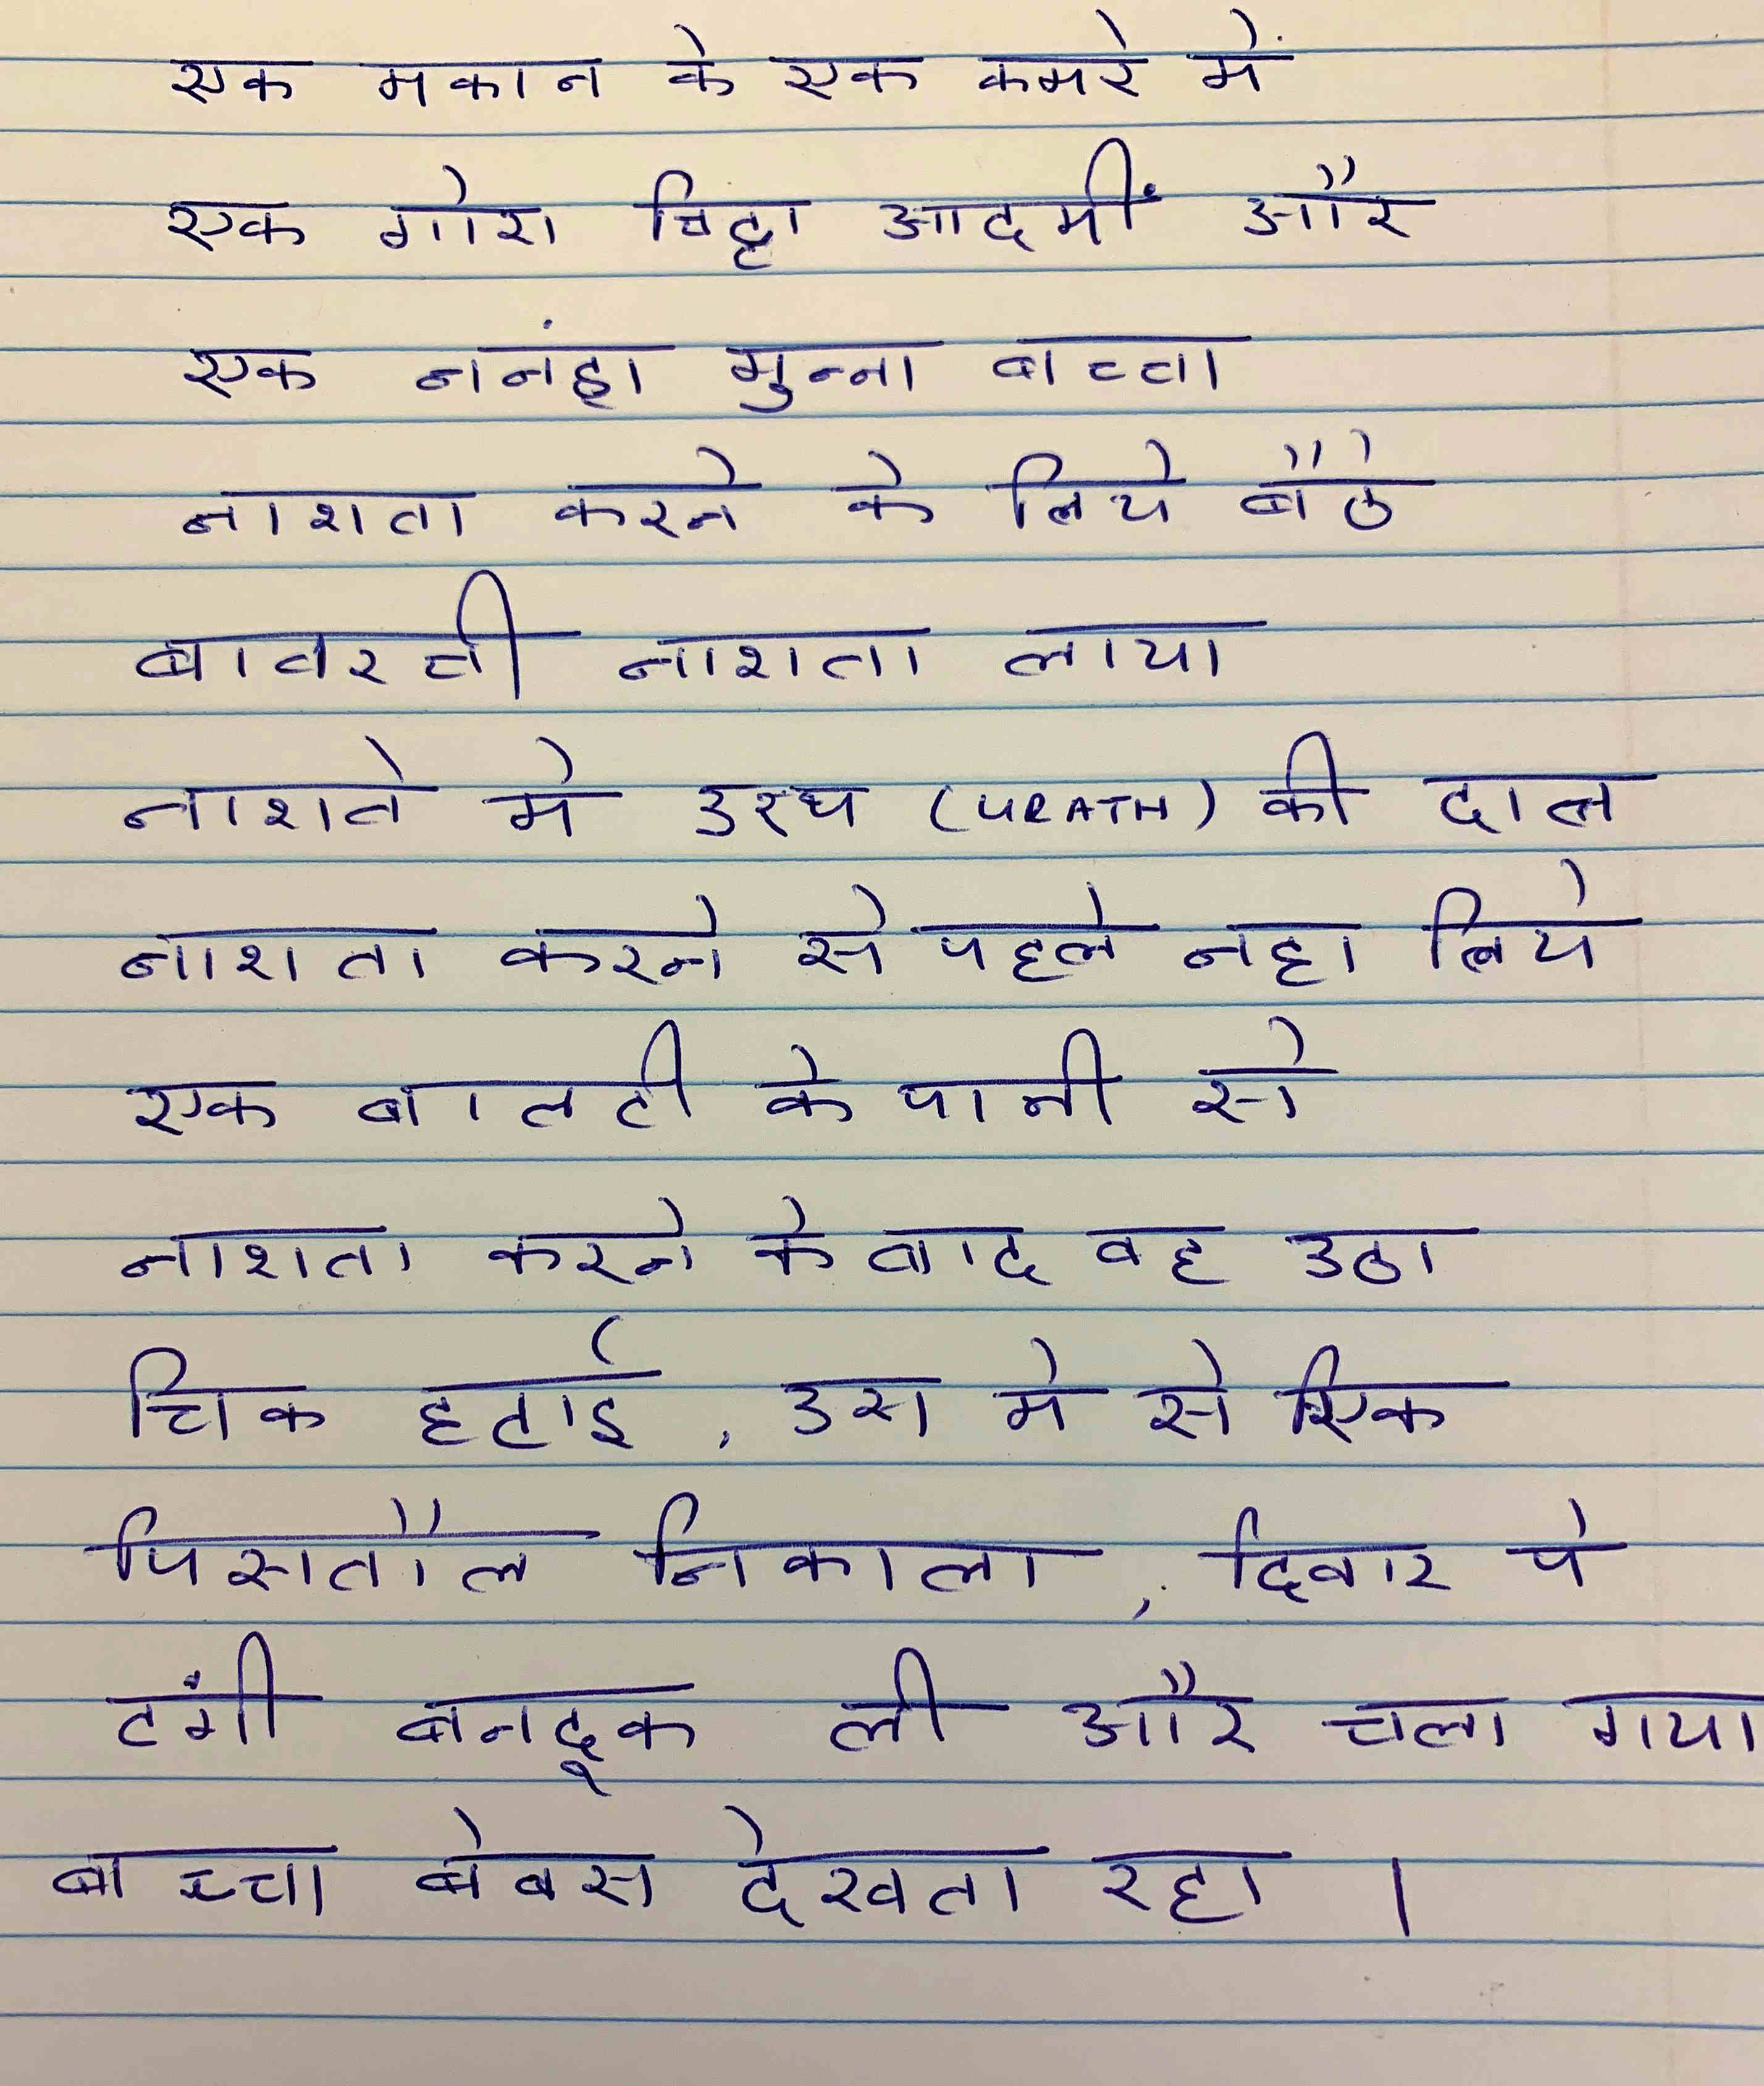 एक मकान के एक कमरे में
एक गोरा चिट्टा आदमीं और
एक ननंहा मुन्ना बाच्चा
नाशता करने के लिये बैठे
बावरची नाशता लाया
नाशते मे उरध (URATH) की दाल
नाशता करने से पहले नहा लिये
एक बालटी के पानी से
नाशता करने के बाद वह उठा
चिक हटाई, उस मे से एिक
पिसतौल निकाला, दिवार पे
टंगी बनदूक ली और चला गया
बाच्चा बेबस देखता रहा ।